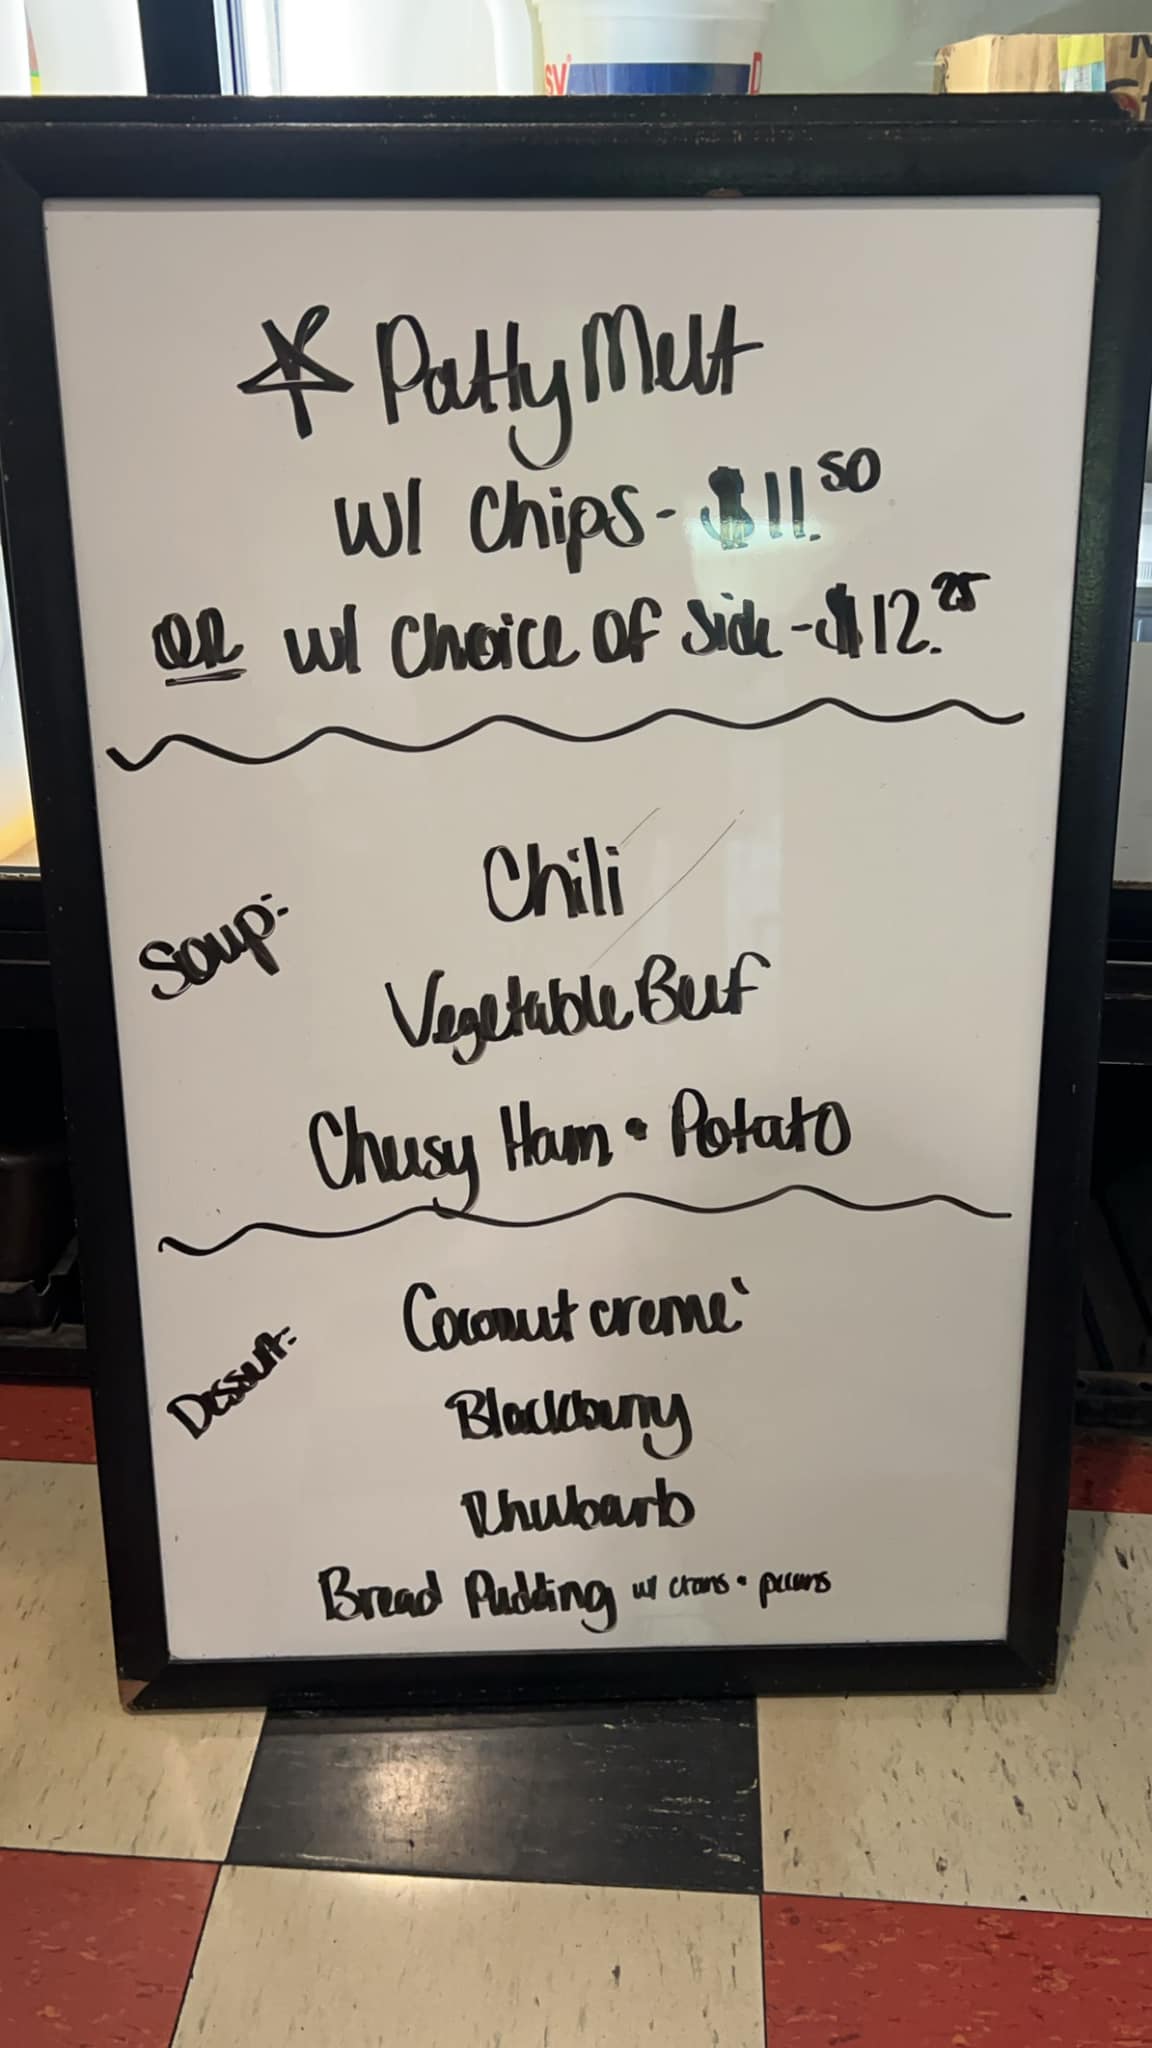 SV D
Patty Melt
W/ Chips - $11.50
OR w/ choice of side - $12.25
Soup:
Chili
Vegetable Beef
Cheesy Ham • Potato
Dessert:
Coconut creme`
Blackberry
Rhubarb
Bread Pudding w/ crans • pecans